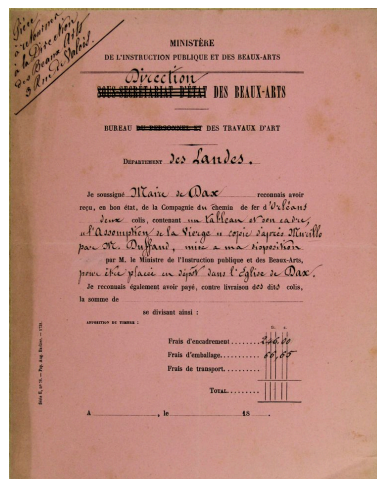 Prière
à retourner
à la Direction
des Beaux Arts
3 rue de Valois.
MINISTÈRE
DE L'INSTRUCTION PUBLIQUE ET DES BEAUX-ARTS
Direction
SOUS-SECRÉTARIAT D'ÉTAT DES BEAUX-ARTS
BUREAU DU PERSONNEL ET DES TRAVAUX D'ART
DÉPARTEMENT des Landes.
Je soussigné Maire de Dax reconnais avoir
reçu, en bon état, de la Compagnie du chemin de fer d'Orléans
deux colis, contenant un tableau et son cadre,
"l'Assomption de la Vierge" copie d'après Murillo
par M. Duffaud, mise a ma disposition
par M. le Ministre de l'Instruction publique et des Beaux-Arts,
pour être placée en dépôt dans l'Église de Dax.
Je reconnais également avoir payé, contre livraison des dits colis,
la somme de
se divisant ainsi :
APPOSITION DU TIMBRE :
fr. c.
Frais d'encadrement 246,00
Frais d'emballage 66,65
Frais de transport
TOTAL
A , le 18 .